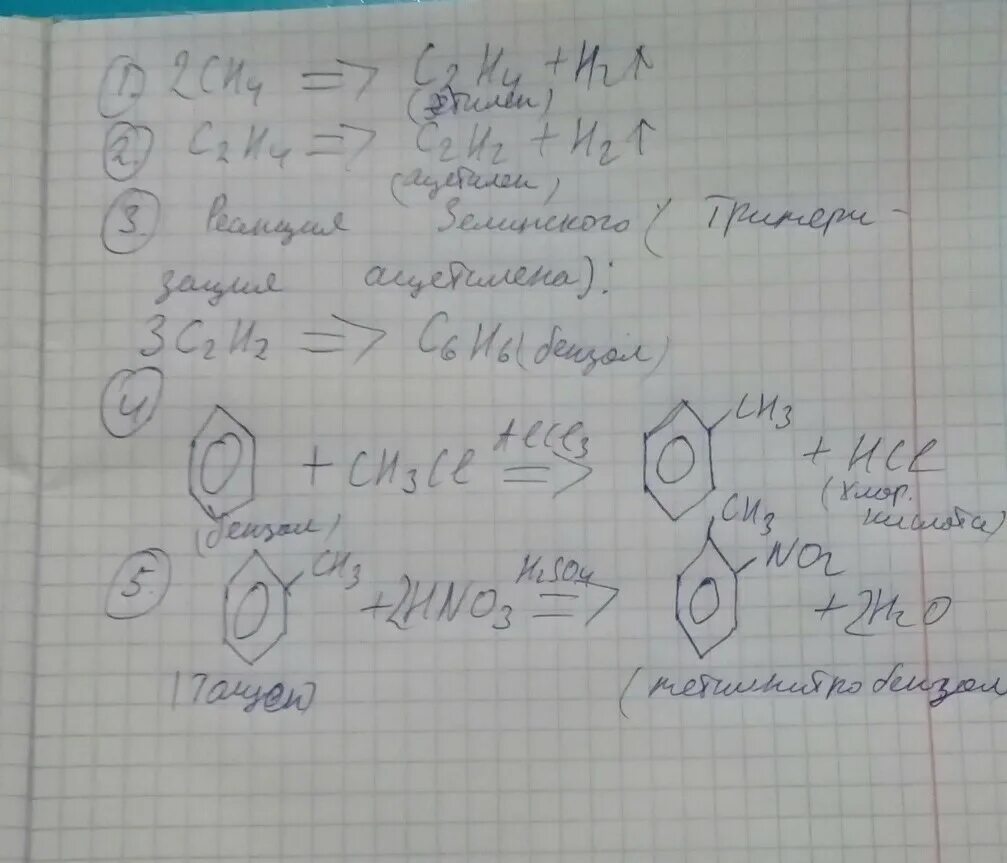 1. 2CH4 => C2H4 + H2↑
(этилен)
2. C2H4 => C2H2 + H2↑
(ацетилен)
3. Реакция Зелинского (Тримери-
зация ацетилена):
3C2H2 => C6H6 (бензол)
4
+ CH3Cl AlCl3 => CH3 + HCl
(бензол) (хлор. кислота)
5. CH3 + 2HNO3 H2SO4 => CH3 NO2 + 2H2O
(метилнитробензол